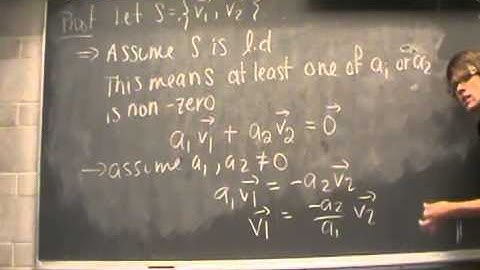 Proof Let S = {v₁⃗, v₂⃗}.
⇒ Assume S is l.d
This means at least one of a₁ or a₂
is non-zero
a₁v₁⃗ + a₂v₂⃗ = 0⃗
→ assume a₁, a₂ ≠ 0
a₁v₁⃗ = -a₂v₂⃗
v₁⃗ = -a₂/a₁ v₂⃗